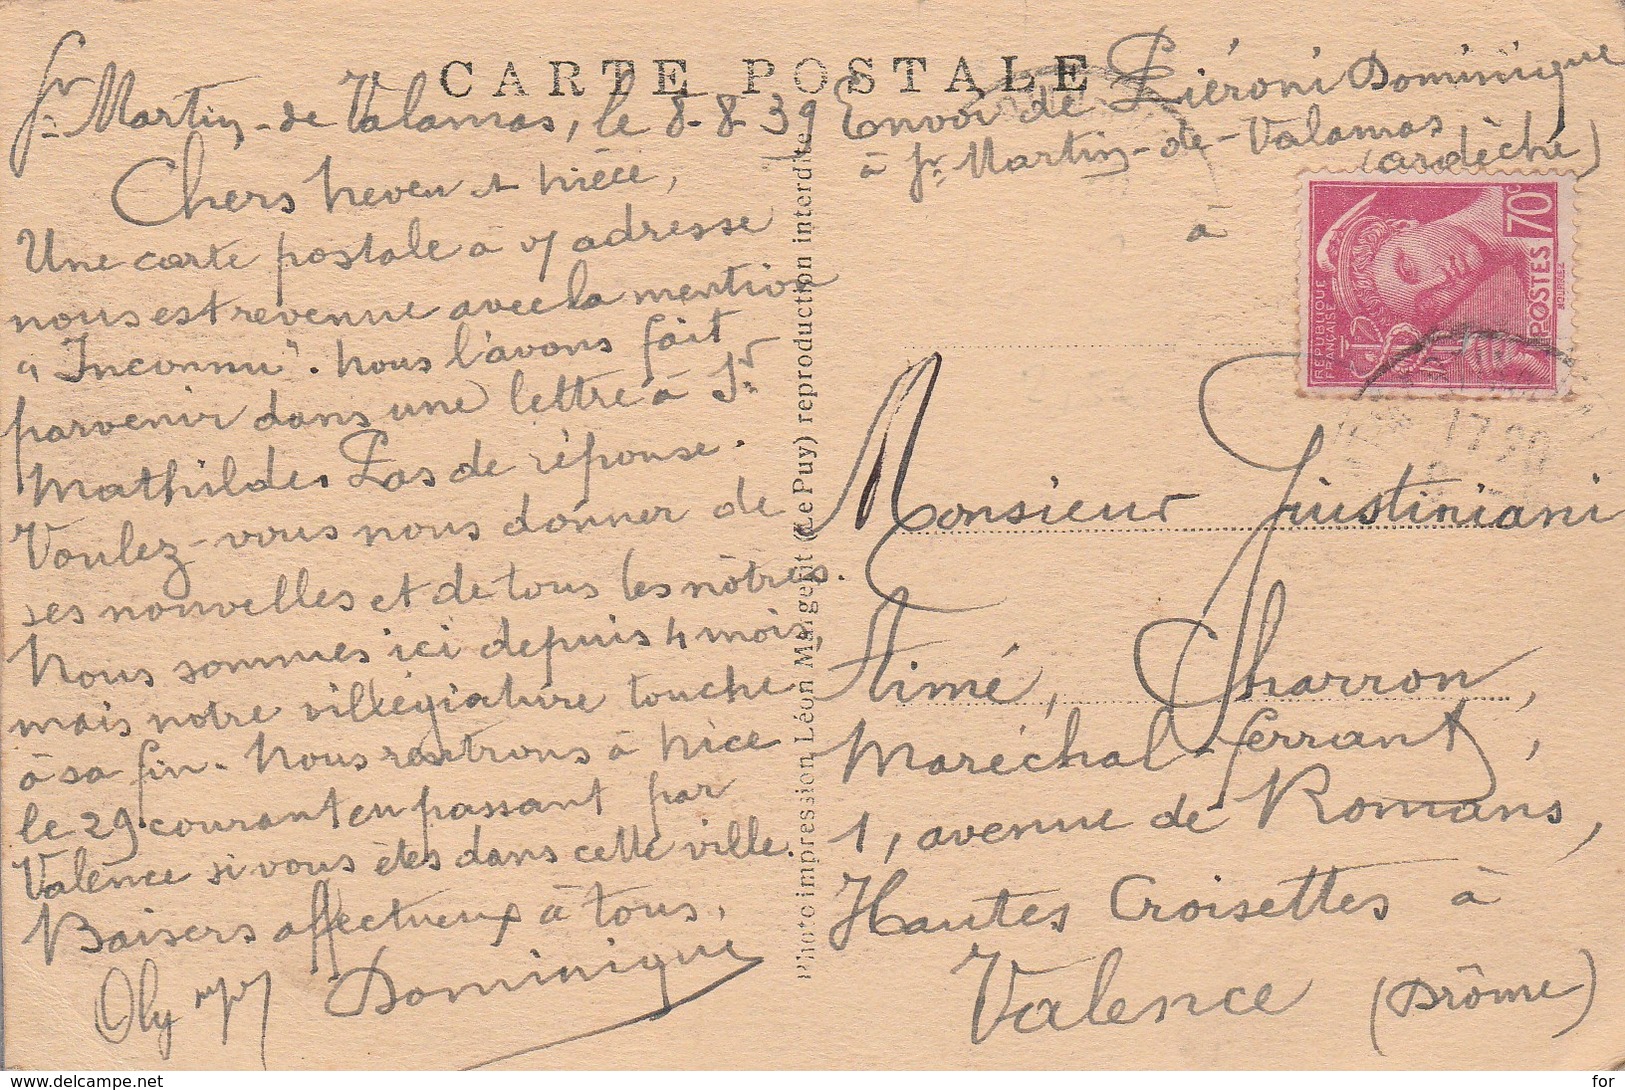 CARTE POSTALE
St Martin-de Valamas, le 8-8-39
Chers neveu et nièce,
Une carte postale à v/ adresse
nous est revenue avec la mention
"Inconnu". Nous l'avons fait
parvenir dans une lettre à St
Mathilde. Pas de réponse.
Voulez-vous nous donner de
ses nouvelles et de tous les nôtres.
Nous sommes ici depuis 4 mois,
mais notre villégiature touche
à sa fin. Nous rentrons à Nice
le 29 courant en passant par
Valence si vous êtes dans cette ville.
Baisers affectueux à tous.
Dominique
Photo impression Léon Margerit (Le Puy) reproduction interdite
Envoi de Piéroni Dominique
à St Martin-de-Valamas
(Ardèche)
à
70c
POSTES
RÉPUBLIQUE
FRANÇAISE
Monsieur Giustiniani
Aimé, Charron,
Maréchal-ferrant,
1, avenue de Romans,
Hautes Croisettes à
Valence (Drôme)